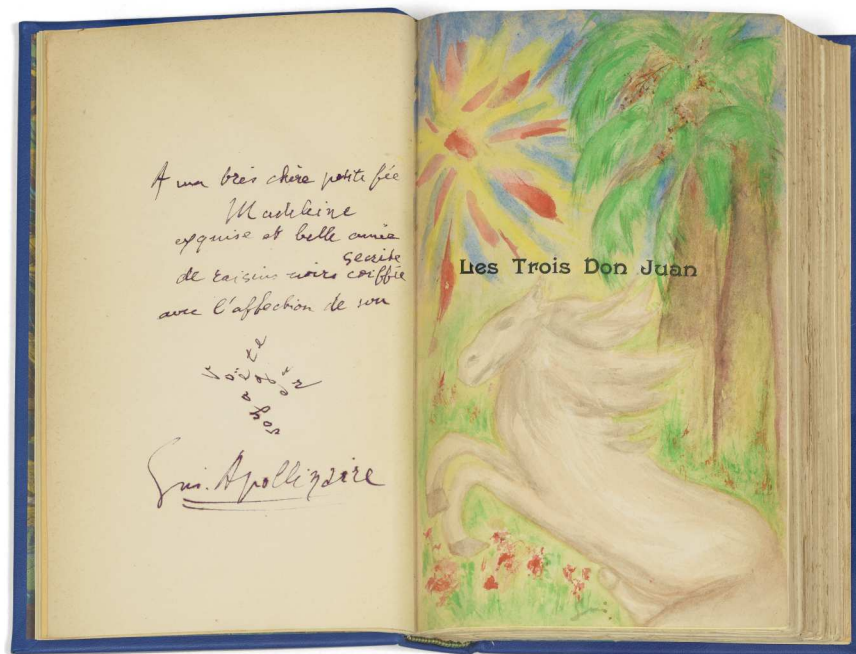 A ma très chère petite fée
Madeleine
exquise et belle amie
secrète
de raisins noirs coiffée
avec l'affection de son
Gui. Apollinaire
Les Trois Don Juan
Gui